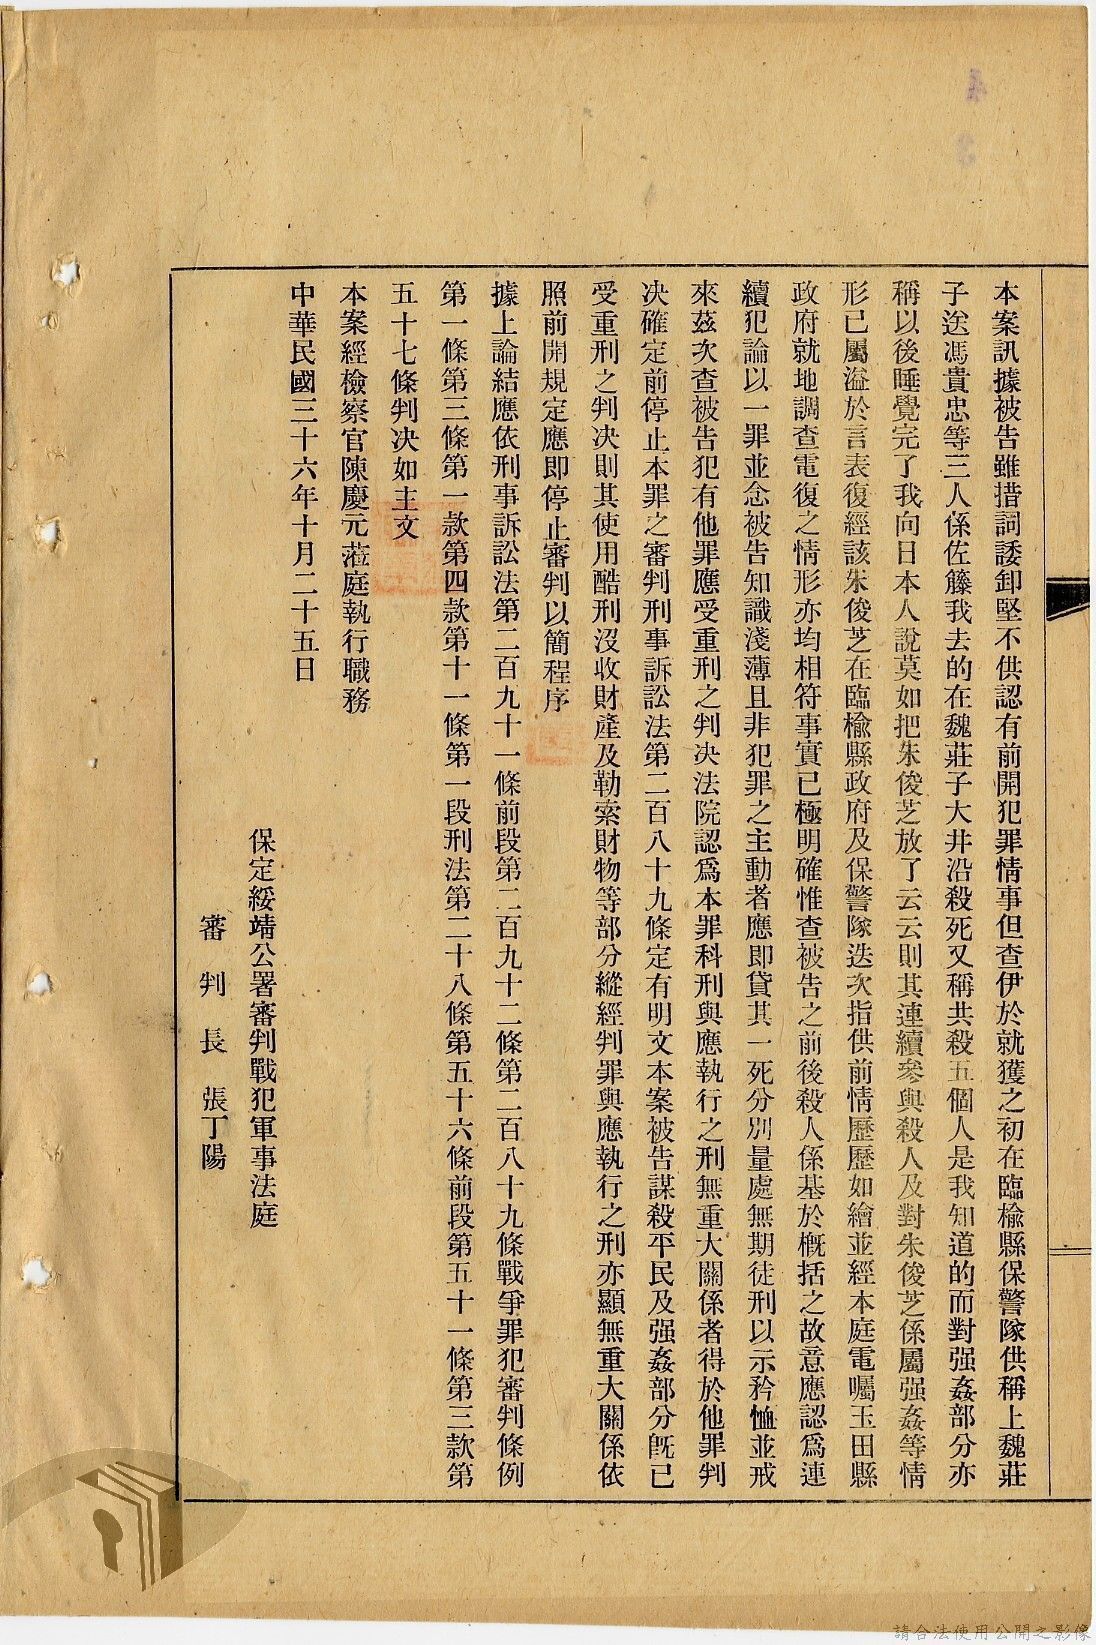 本案訊據被告雖措詞諉卸堅不供認有前開犯罪情事但查伊於就獲之初在臨楡縣保警隊供稱上魏莊
子送馮貴忠等三人係佐藤我去的在魏莊子大井沿殺死又稱共殺五個人是我知道的而對强姦部分亦
稱以後睡覺完了我向日本人說莫如把朱俊芝放了云云則其連續參與殺人及對朱俊芝係屬强姦等情
形已屬溢於言表復經該朱俊芝在臨楡縣政府及保警隊迭次指供前情歷歷如繪並經本庭電囑玉田縣
政府就地調查電復之情形亦均相符事實已極明確惟查被告之前後殺人係基於槪括之故意應認爲連
續犯論以一罪並念被告知識淺薄且非犯罪之主動者應即貸其一死分別量處無期徒刑以示矜恤並戒
來茲次查被告犯有他罪應受重刑之判决法院認爲本罪科刑與應執行之刑無重大關係者得於他罪判
决確定前停止本罪之審判刑事訴訟法第二百八十九條定有明文本案被告謀殺平民及强姦部分旣已
受重刑之判决則其使用酷刑沒收財產及勒索財物等部分縱經判罪與應執行之刑亦顯無重大關係依
照前開規定應即停止審判以簡程序
據上論結應依刑事訴訟法第二百九十一條前段第二百九十二條第二百八十九條戰爭罪犯審判條例
第一條第三條第一款第四款第十一條第一段刑法第二十八條第五十六條前段第五十一條第三款第
五十七條判决如主文
本案經檢察官陳慶元蒞庭執行職務
中華民國三十六年十月二十五日
保定綏靖公署審判戰犯軍事法庭
審判長 張丁陽
請合法使用公開之影像